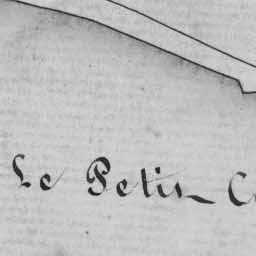 Le Petit